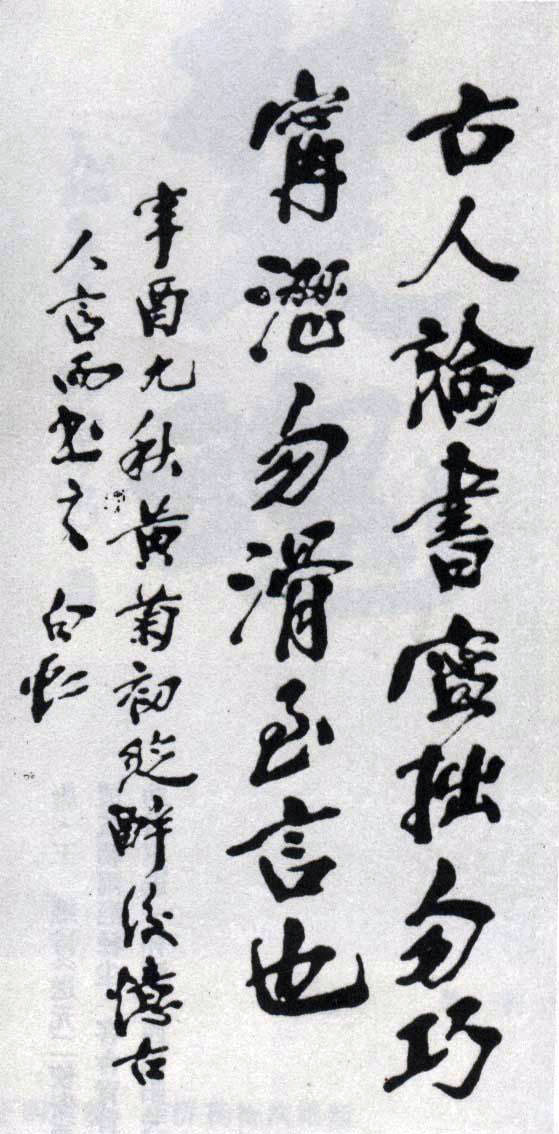 古人論書寧拙勿巧
甯澀勿滑至言也
辛酉九秋黃菊初綻醉後憶古
人言而書之 白蕉